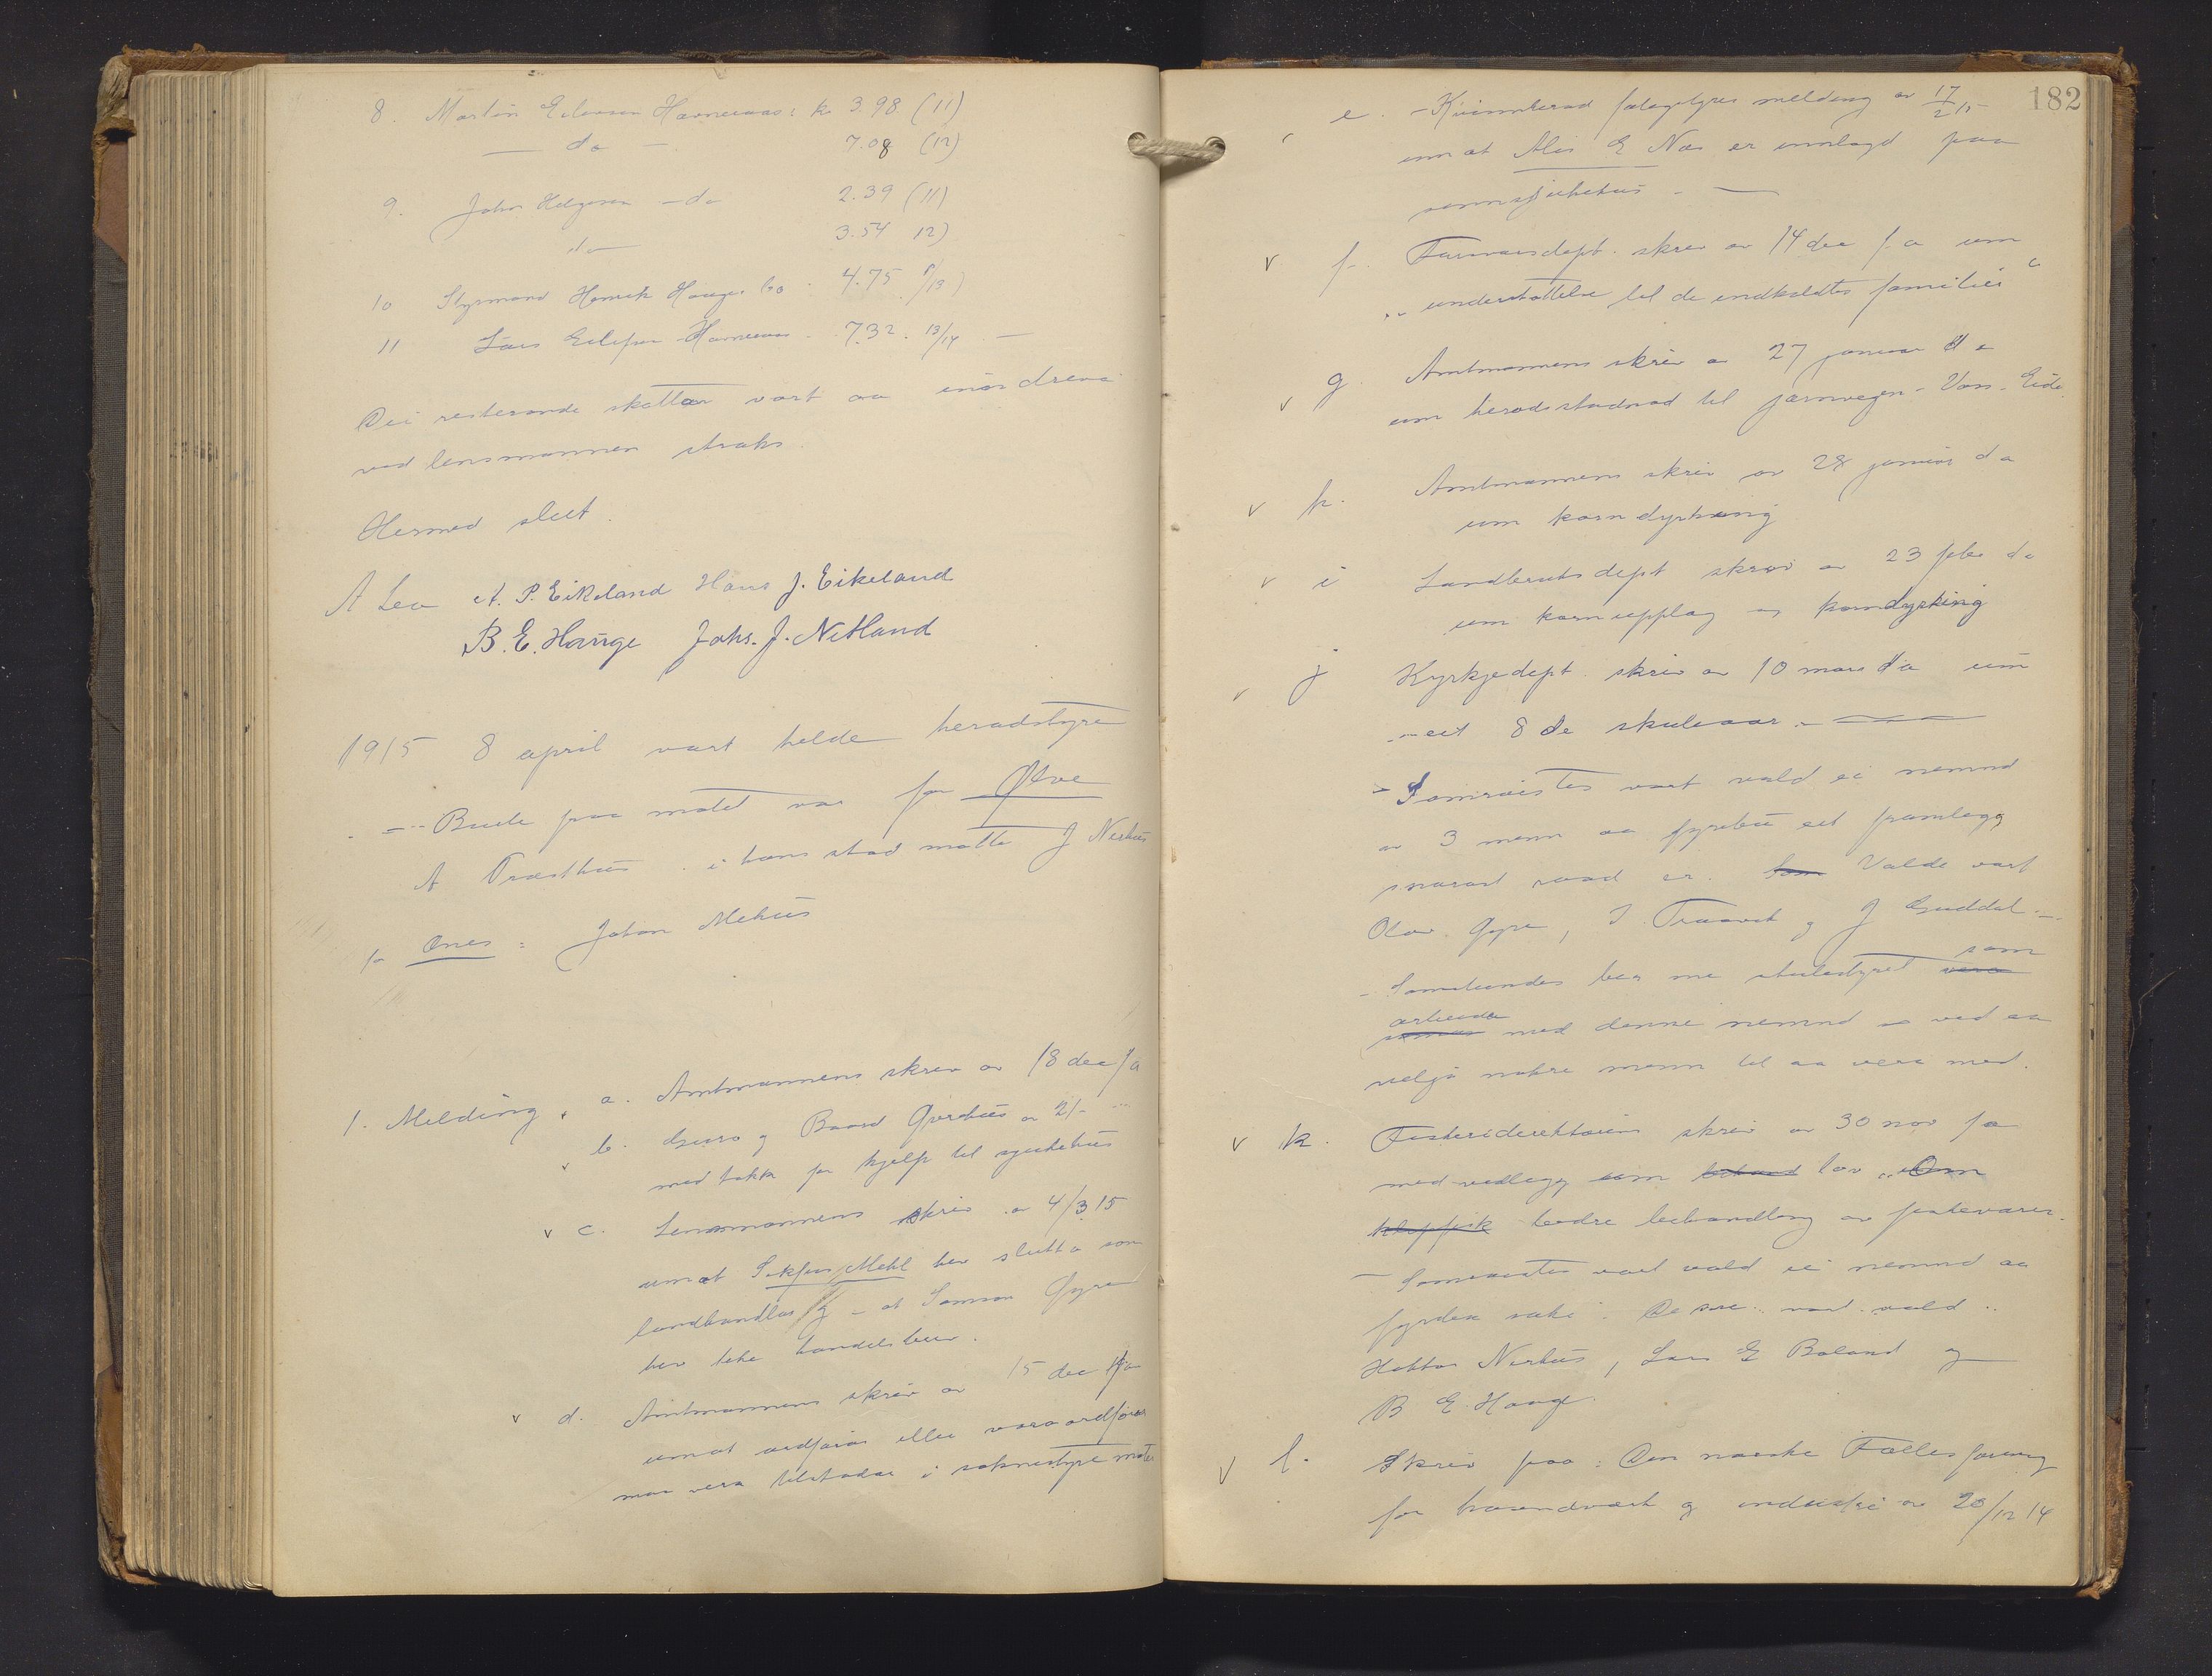 8. Martin Eilevsen Havneraas: kr 3.98 (11)
— do — 7.08 (12)
9. Johan Helgesen — do 2.39 (11)
do — 3.54 12)
10 Styrmand Henrik Hauge 4.75 /13)
11 Lars Havneraas 7.32. 13/14 —
Dei resterande skattar vart aa inndreva
ved lensmannen straks
Hermed slut.
A Lea A. P. Eikeland Hans J. Eikeland
B. E. Hauge Johs. J. Netland
1915 8 april vart helde heradstyre
Burte paa møtet var for Ølve
A Træsthus i hans stad møtte J Nerhus
fo Ænes: Johan Mehus
1. Melding. a. Amtmannens skriv av 18 dec f a
b. Guro og Baard Gjerthus av 2/-
med takk for hjelp til sjukehus
v c. Lensmannens skriv av 4/3 15
um at Mehl hev slutta som
landhandlar og – at Samson Gjøra
hev løke handelsbrev.
v d. Amtmannens skriv av 15 dec f a
um at ordførar eller varaordførar
maa vera tilstadar i soknestyremøte
182
e. Kvinnherad fatagstyres melding av 17/2 15
um at E Næs er innlagd paa
sinnsjukehus —
v f. Forsvarsdept. skriv av 14 dec f a um
„understøttelse til de indkaldtes familier“
v g. Amtmannens skriv av 27 januar d a
um heradsstudnad til jarnvegen – Voss – Eide
v h. Amtmannens skriv av 28 januar d a
um korndyrking
v i Landbruksdept skriv av 23 febr d a
um kornupplag og korndyrking
v j Kyrkjedept. skriv av 10 mars d a um
eit 8 de skuleaar. —
– Samrøistes vart vald ei nemnd
av 3 menn aa fyrebu eit framlegg
snarast raad er. Valde vart
Olav Gjøra, T. Traavik og J Guddal –
– Samstundes bed me skulestyret som
arbeida med denne nemnd ved aa
velja nokre menn til aa vera med.
v k. Fiskeridirektørens skriv av 30 nov f a
med vedlegg um lov „Om
klippfisk bedre behandling av fiskevarer.
– Samrøistes vart vald ei nemnd aa
fyrebu saki. Desse vart vald
Nerhus, Lars E Baland og
B E Hauge.
v l. Skriv fraa: Den norske Fællesforening
for haandverk og industri av 20/12 14